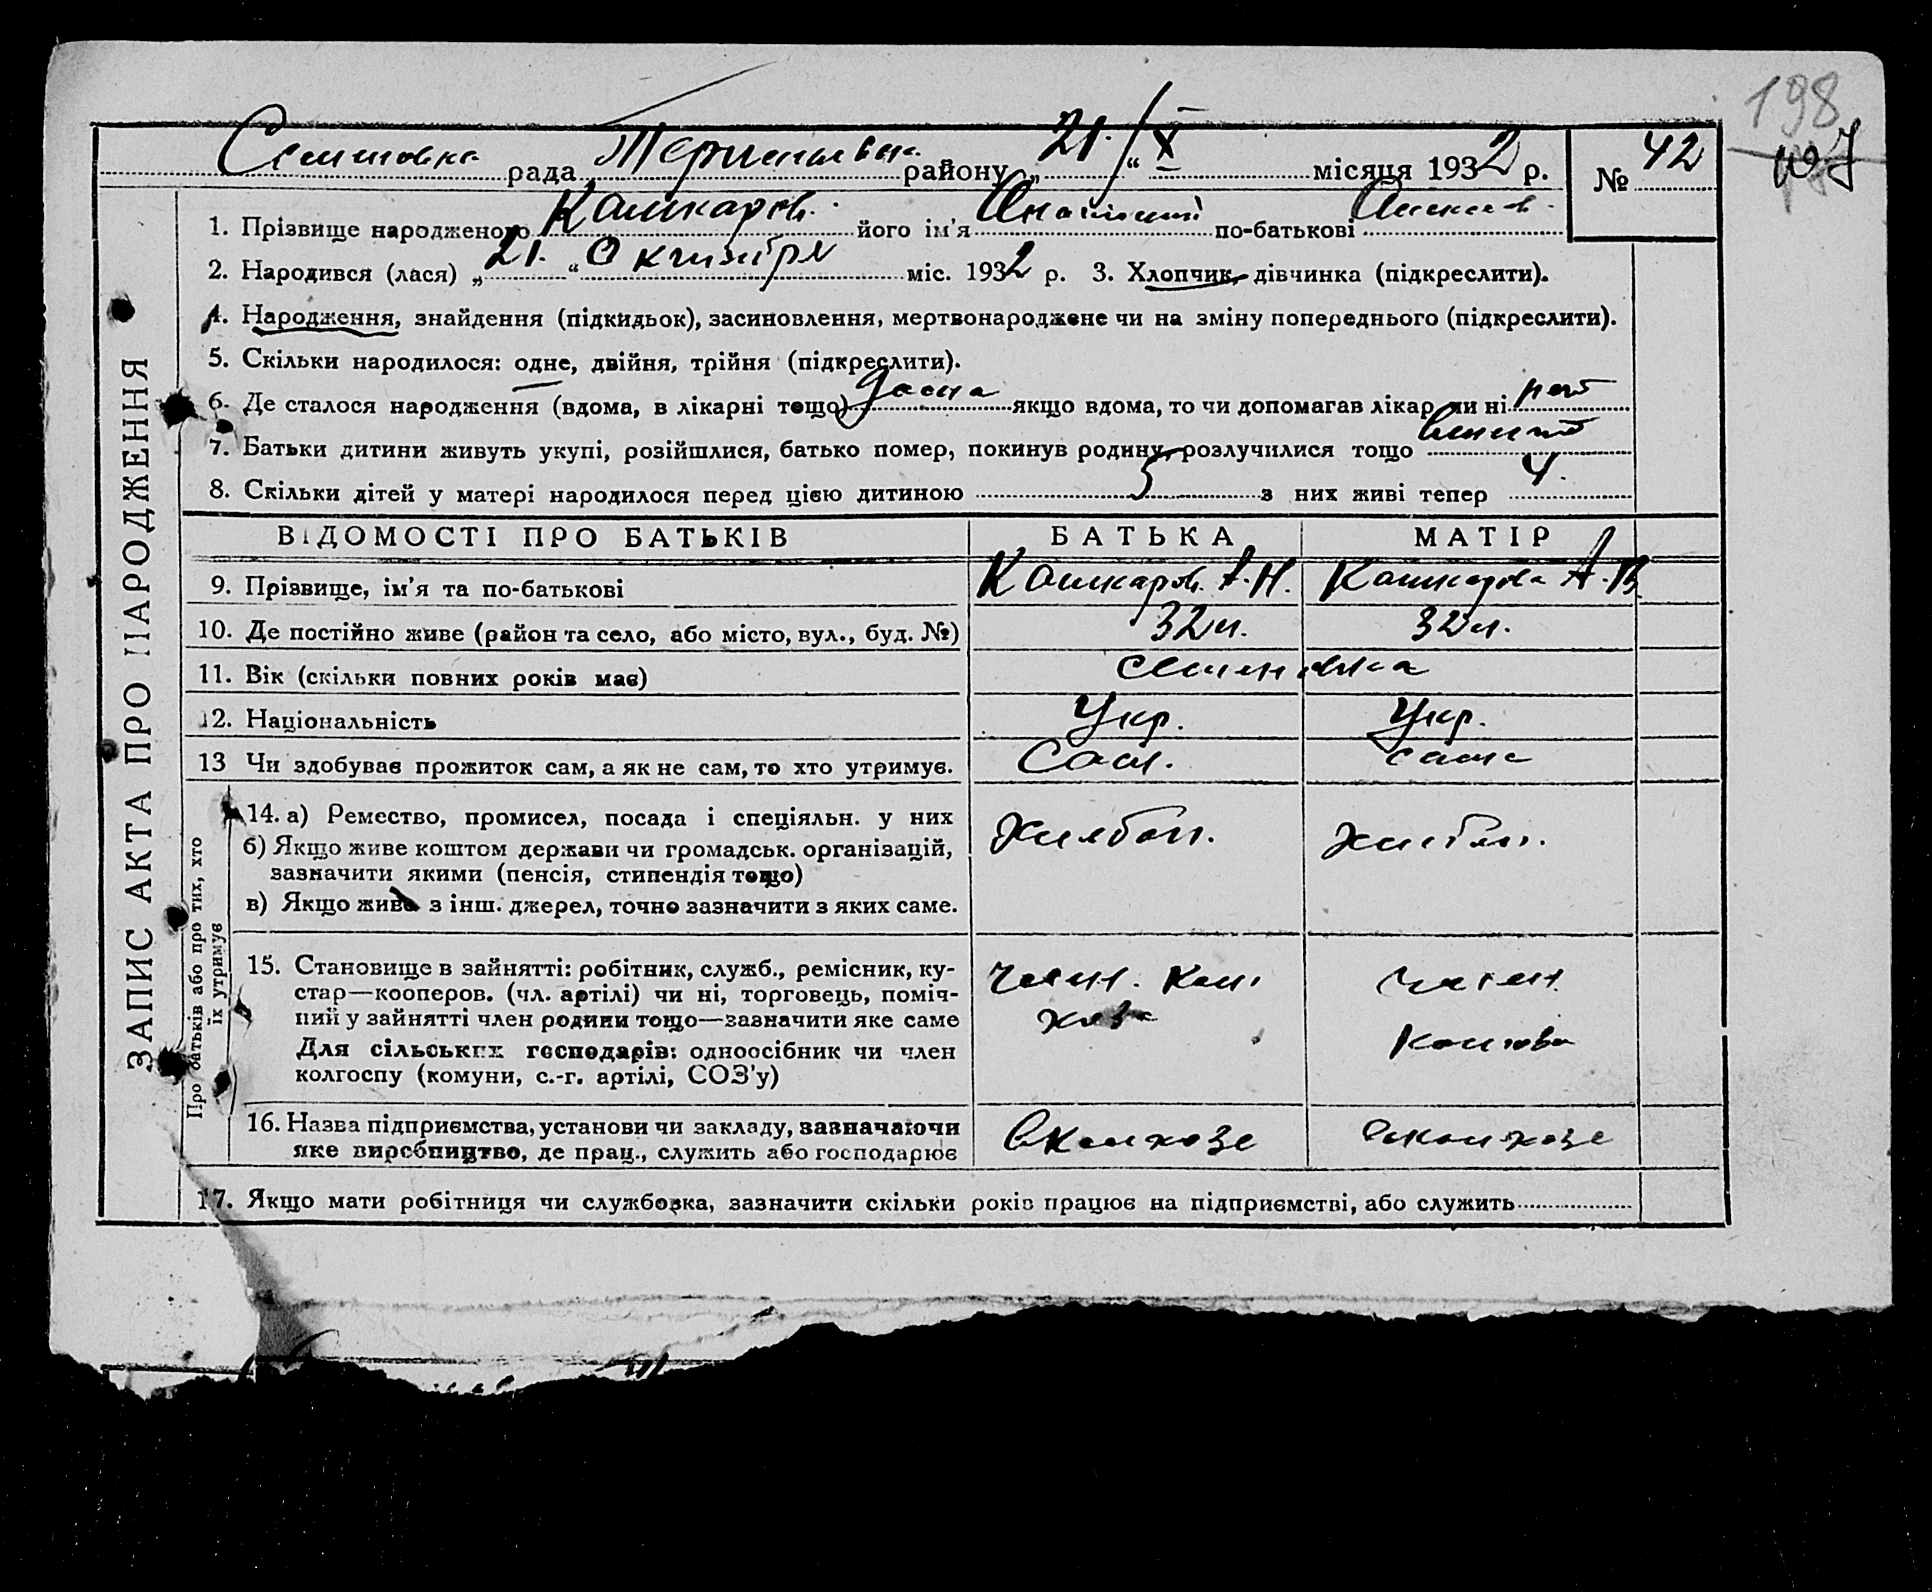 198
Семеновка рада района 21/X місяця 1932 р. № 42
1. Прізвище народженого Кашкаров його ім'я Анатолий по-батькові
2. Народився (лася) „21“ Октября міс. 1932 р. 3. Хлопчик, дівчинка (підкреслити).
4. Народження, знайдення (підкидьок), засиновлення, мертвонароджене чи на зміну попереднього (підкреслити).
5. Скільки народилося: одне, двійня, трійня (підкреслити).
6. Де сталося народження (вдома, в лікарні тощо) дома якщо вдома, то чи допомагав лікар чи ні нет
7. Батьки дитини живуть укупі, розійшлися, батько помер, покинув родину, розлучилися тощо
8. Скільки дітей у матері народилося перед цією дитиною 5 з них живі тепер 4.
ВІДОМОСТІ ПРО БАТЬКІВ БАТЬКА МАТІР
9. Прізвище, ім'я та по-батькові Кашкаров А.Н. Кашкарова А.В.
10. Де постійно живе (район та село, або місто, вул., буд. №) 32 л. 32 л.
11. Вік (скільки повних років має) Семеновка
12. Національність Укр. Укр.
13 Чи здобуває прожиток сам, а як не сам, то хто утримує. Сам. сама
14. а) Ремество, промисел, посада і спеціяльн. у них Хлебоп. Хлебоп.
б) Якщо живе коштом держави чи громадськ. організацій,
зазначити якими (пенсія, стипендія тощо)
в) Якщо живе з інш. джерел, точно зазначити з яких саме.
15. Становище в зайнятті: робітник, служб., ремісник, ку-
стар—кооперов. (чл. артілі) чи ні, торговець, поміч-
ний у зайнятті член родини тощо—зазначити яке саме
Для сільських господарів: одноосібник чи член
колгоспу (комуни, с.-г. артілі, СОЗ'у)
член. кол
хоза
член
колхоза
16. Назва підприємства, установи чи закладу, зазначаючи
яке виробництво, де прац., служить або господарює
в колхозе в колхозе
17. Якщо мати робітниця чи службовка, зазначити скільки років працює на підприємстві, або служить
ЗАПИС АКТА ПРО НАРОДЖЕННЯ
Про батьків або про тих, хто
їх утримує